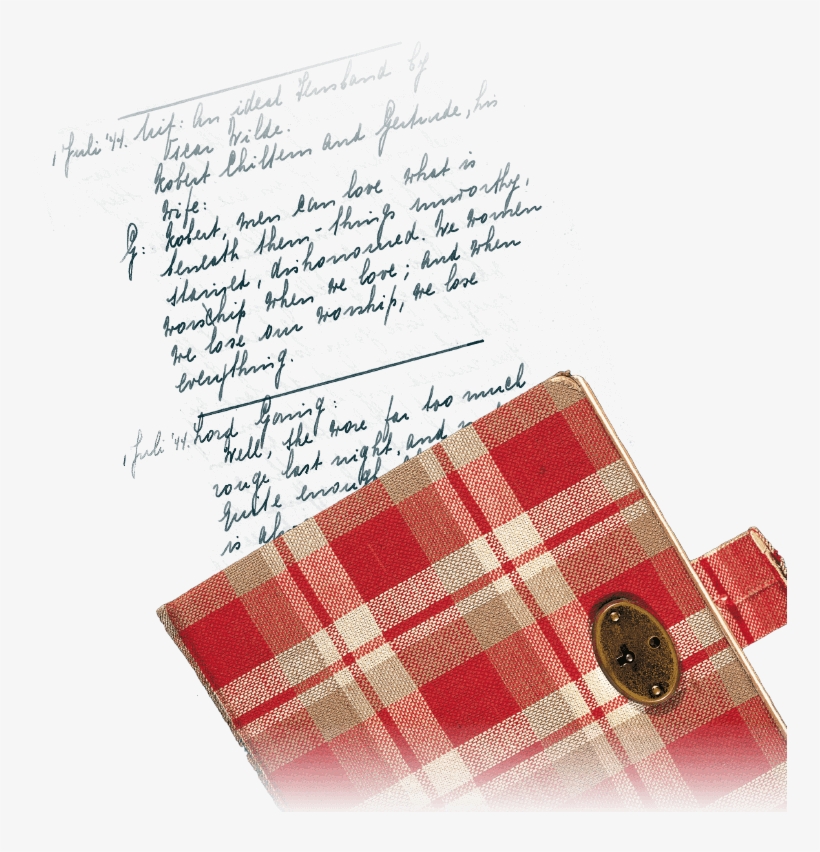 1 Juli '44. Uit: An ideal Husband by
Oscar Wilde.
Robert Chiltern and Gertrude, his
wife:
G: Robert, men can love what is
beneath them - things unworthy,
stained, dishonoured. We women
worship when we love; and when
we lose our worship, we lose
everything.
1 Juli '44. Lord Goring:
Well, she wore far too much
rouge last night, and
quite enough
is